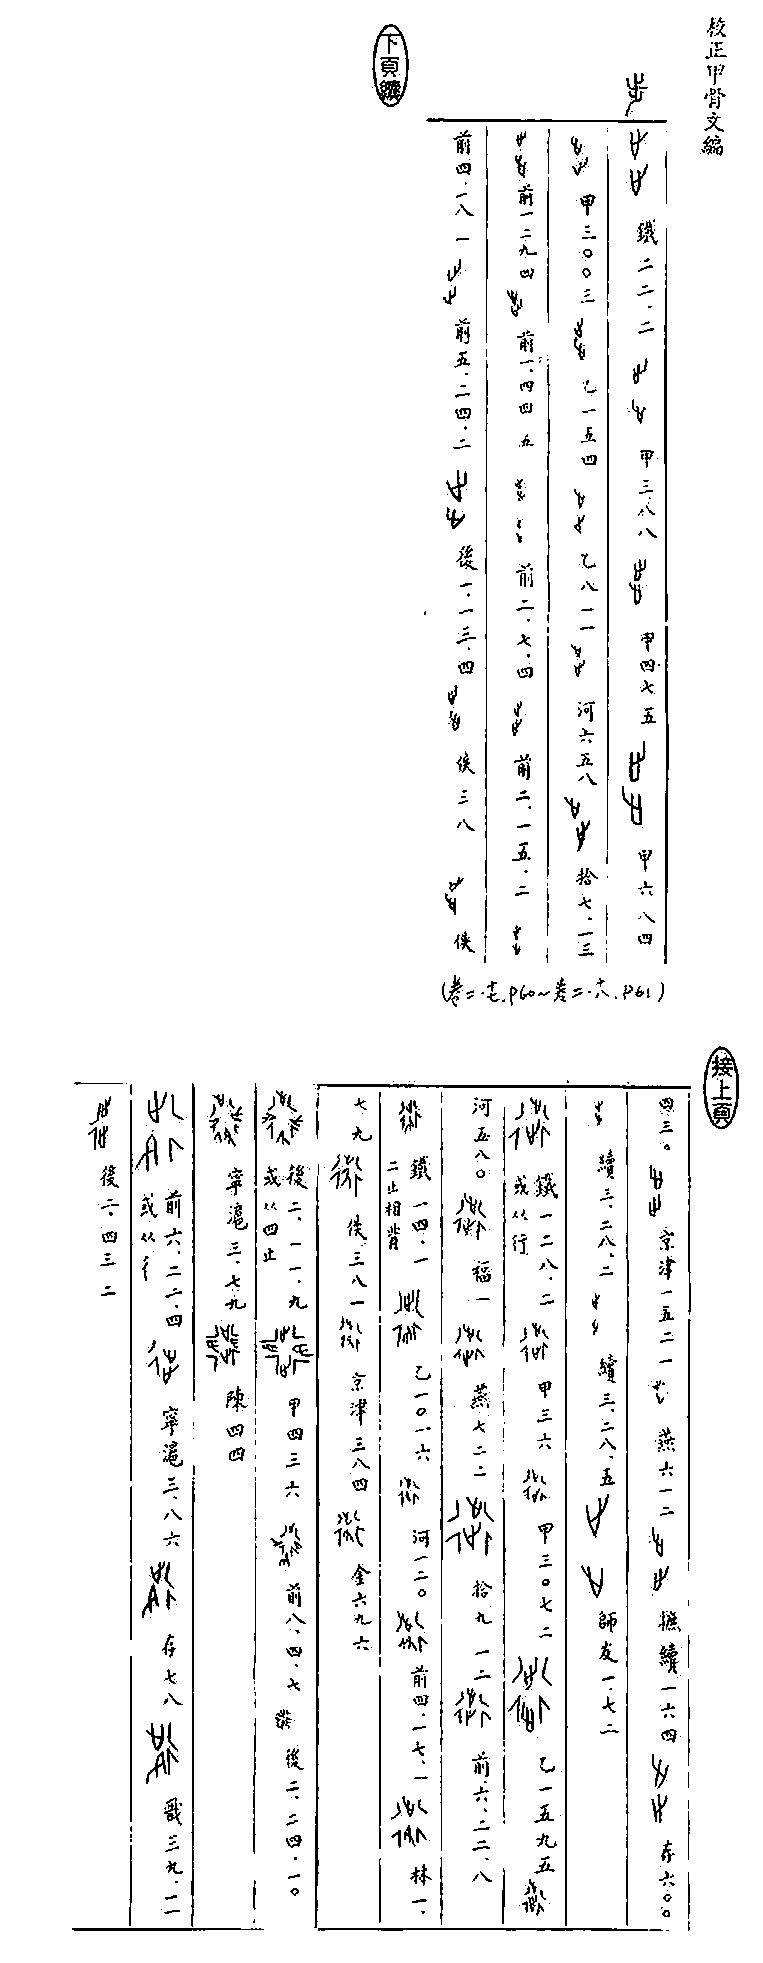 校正甲骨文編
步
鐵二二.二 甲三八八 甲四七五 甲六八四
甲三〇〇三 乙一五四 乙八一一 河六五八 拾七.一三
前一二九四 前一.四四五 前二.七.四 前二.一五.二
前四.一八一 前五.二四.二 後一.一三.四 佚三八 佚
下頁續
(卷二.十七.P60~卷二.十八.P61)
接上頁
四三〇 京津一五二一 燕六一二 摭續一六四 存六〇〇
續三.二八.二 續三.二八.五 師友一.七二
鐵一二八.二 或从行 甲三六 甲三〇七二 乙一五九五
河五八〇 福一 燕七二二 拾九一二 前六.二二.八
鐵一四.一 二止相背 乙一〇一六 河一二〇 前四.一七.一 林一.
七九 佚三八一 京津三八四 金六九六
後二.一一.九 或从四止 甲四三六 前八.四.七 後二.二四.一〇
寧滬三.七九 陳四四
前六.二二.四 或从彳 寧滬三.八六 存七八 戩三九.一一
後二.四三二